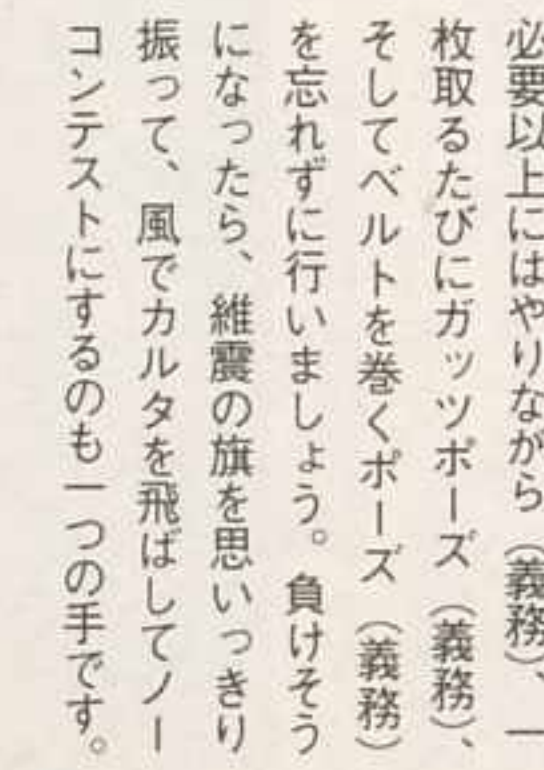 必要以上にはやりながら（義務）、一
枚取るたびにガッツポーズ（義務）、
そしてベルトを巻くポーズ（義務）
を忘れずに行いましょう。負けそう
になったら、維震の旗を思いっきり
振って、風でカルタを飛ばしてノー
コンテストにするのも一つの手です。